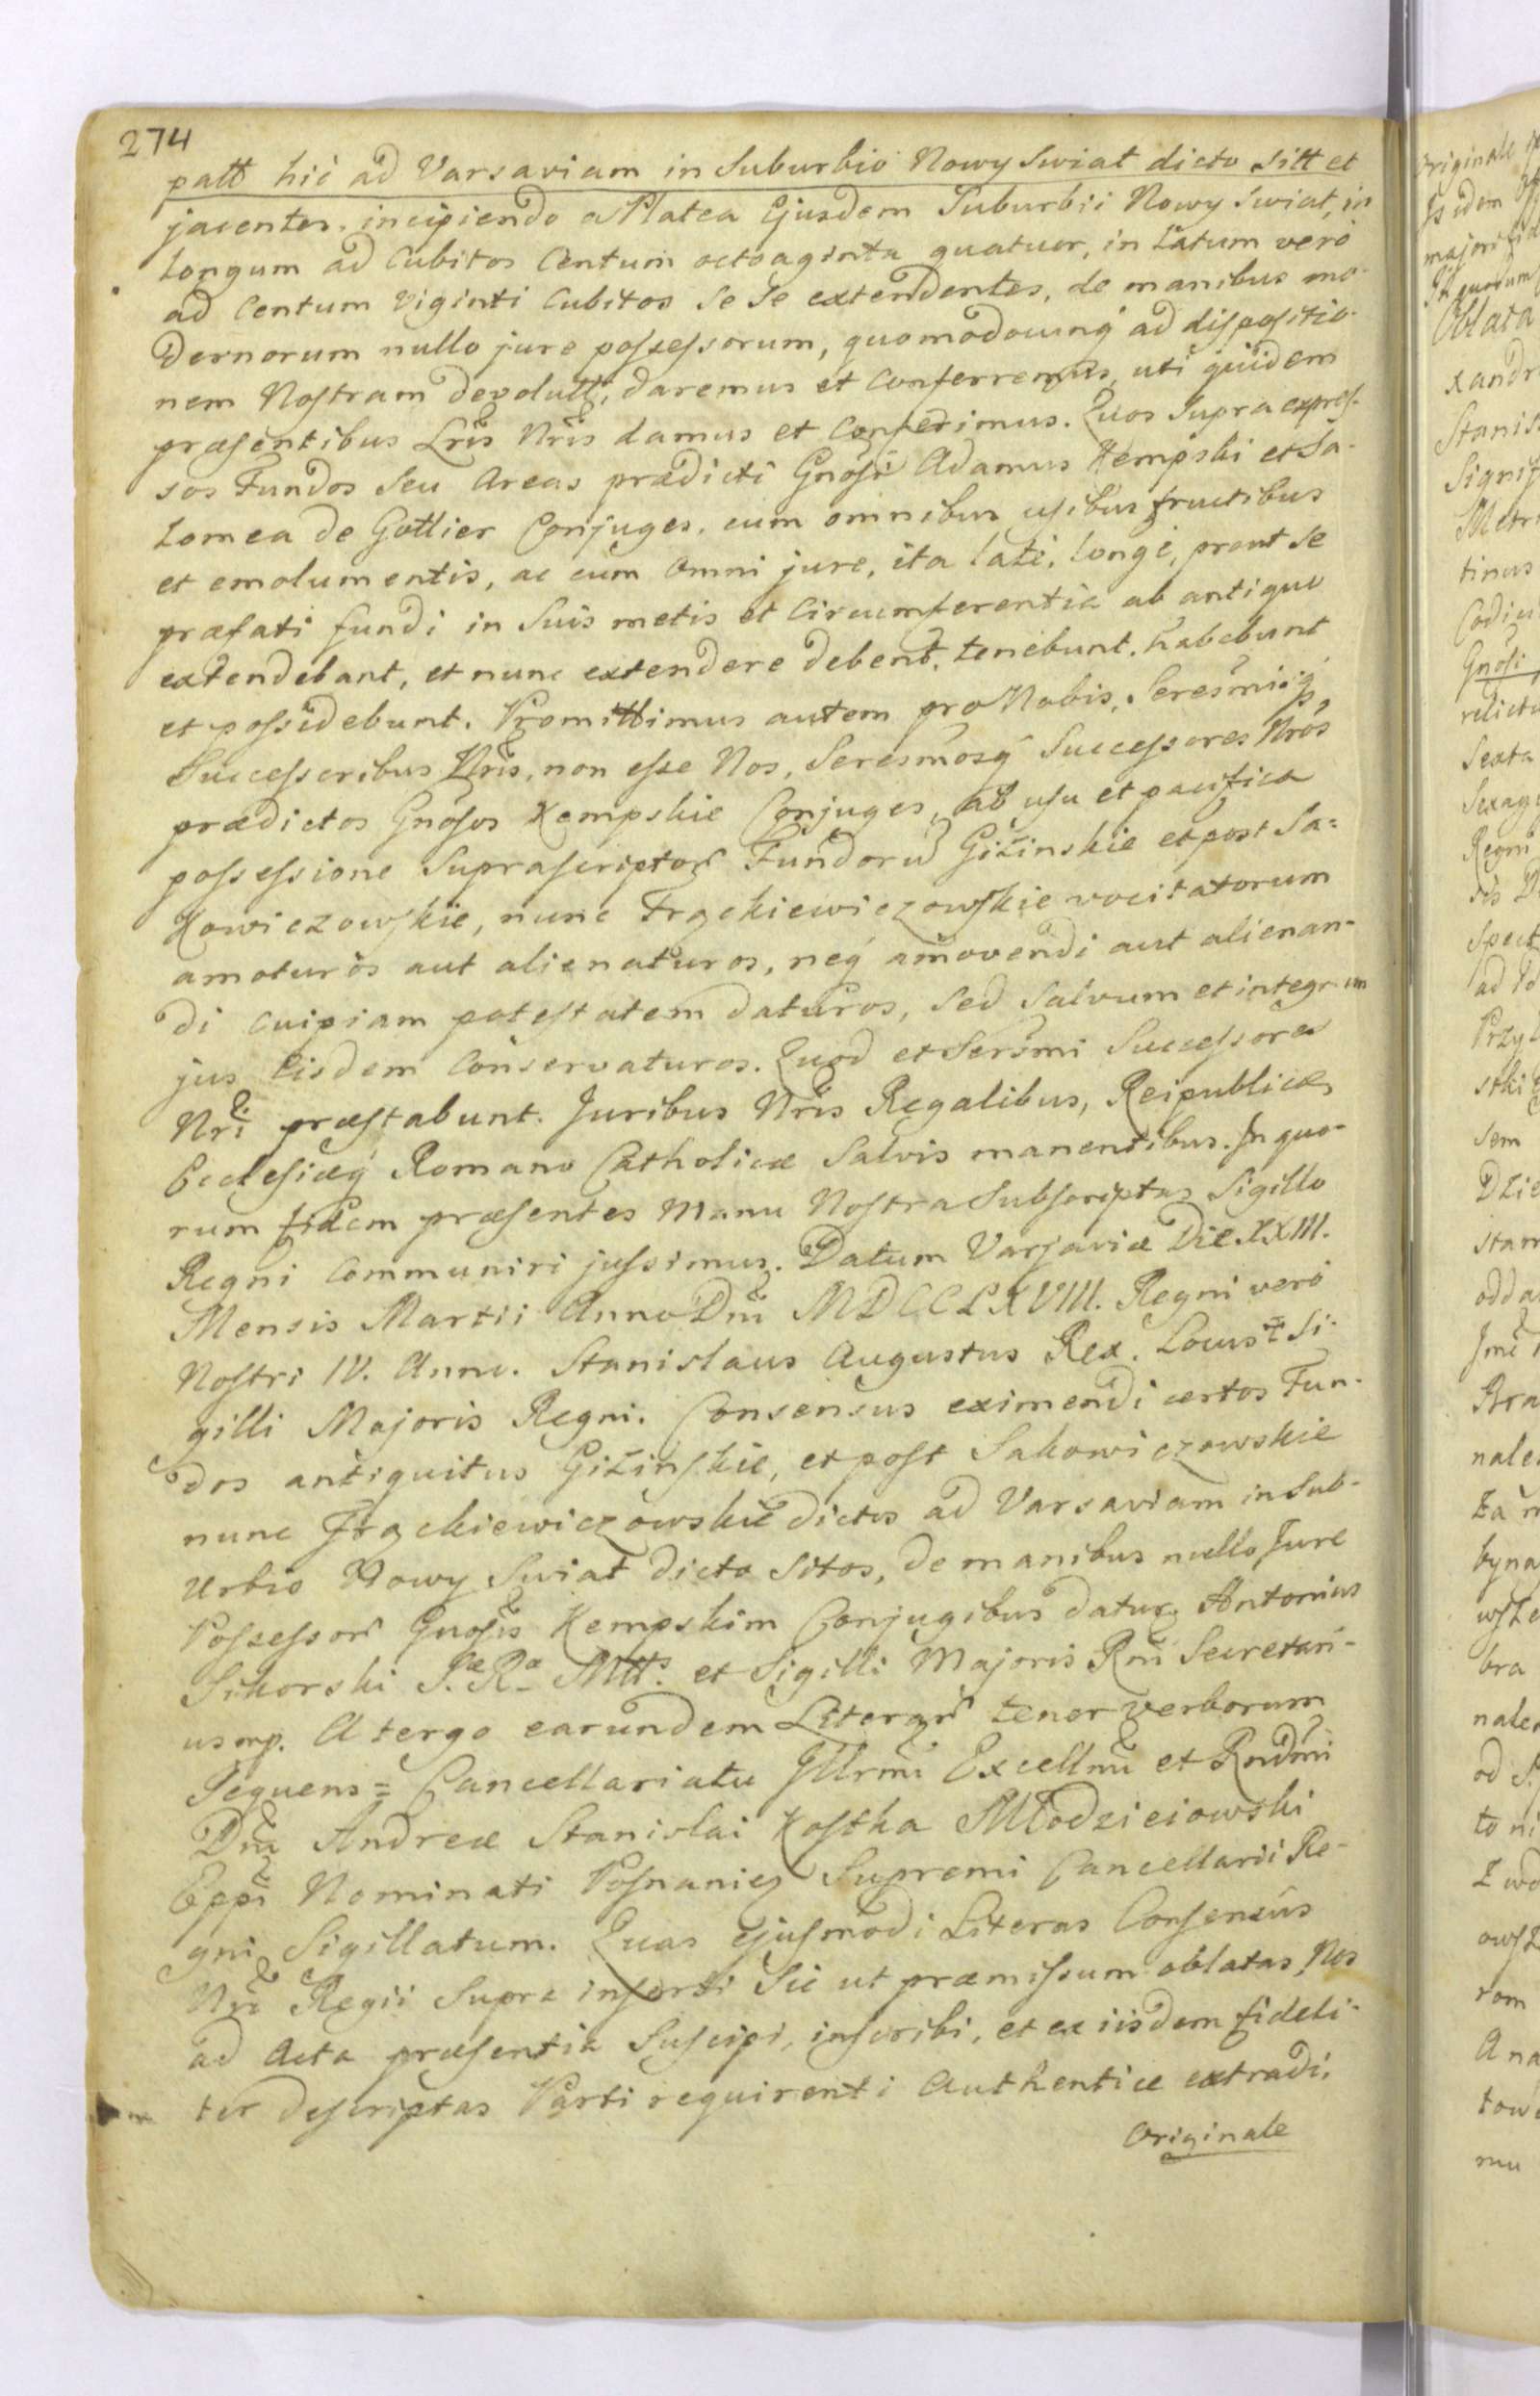 274
patt hic ad Varsaviam in Suburbio Nowy Swiat dicto sitt et
jacentes. incipiendo a Platea Ejusdem Suburbii Nowy Swiat, in
Longum ad Cubitos Centum octoaginta quatuor, in Latum verò
ad Centum viginti Cubitos se se extendentes, de manibus mo-
dernorum nullo jure possessorum, quomodocunq́ ad dispositio-
nem Nostram devolutt, daremus et conferremus, uti quidem
præsentibus Lris Nris damus et Conferimus. Quos supra expres-
sos Fundos seu Areas prædicti Gnosi Adamus Kempski et Sa-
lomea de Gottier Conjuges, cum omnibus usibus fructibus
et emolumentis, ac cum omni jure, ita latè, longè, prout se
præfati fundi in suis metis et circumferentia ab antiquo
extendebant, et nunc extendere debent, tenebunt, habebunt
et possidebunt. Promittimus autem pro Nobis, Seresmisq́,
Successoribus Nris, non esse Nos, Seresmosq́ Successores Nros
prædictos Gnosos Kempskie Conjuges, ab usu et pacifica
possessione suprascriptor Fundorū Giżinskie et post Sa=
kowiczowskie, nunc Frąckiewiczowskie vocitatorum
amoturos aut alienaturos, neq́ amovendi aut alienan-
di cuipiam potestatem daturos, sed salvum et integrum
jus Eisdem Conservaturos. Quod et Sersmi Successores
Nri præstabunt. Juribus Nris Regalibus, Reipublicæ,
Ecclesiæq́ Romano Catholicæ salvis manentibus. In quo-
rum fidem præsentes Manu Nostra subscriptas Sigillo
Regni Communiri jussimus. Datum Varsaviæ Die XXIII.
Mensis Martii Anno Dni MDCCLXVIII. Regni verò
Nostri IV. Anno. Stanislaus Augustus Rex. Locus Si-
gilli Majoris Regni. Consensus eximendi certos Fun-
dos antiquitus Giżinskie, et post Sakowiczowskie
nunc Frąckiewiczowskie dictos ad Varsaviam in Sub-
urbio Nowy Swiat dicto sitos, de manibus nullo Jure
Possessor Gnosis Kempskim Conjugibus datur, Antonius
Sikorski S.æ R.æ Mttis. et Sigilli Majoris Rni Secretari-
us mp. A tergo earundem Literar tenor verborum
sequens = Cancellariatu Illrmi Excellmi et Rndmi
Dni Andreæ Stanislai Kostka Młodzieiowski
Eppi Nominati Posnanien Supremi Cancellarii Re-
gni Sigillatum. Quas ejusmodi Literas Consensûs
Nri Regii supra inserti sic ut præmissum oblatas, Nos
ad Acta præsentia suscipi, inscribi, et ex iisdem fideli-
ter descriptas Parti requirenti Authenticè extradi,
Originale